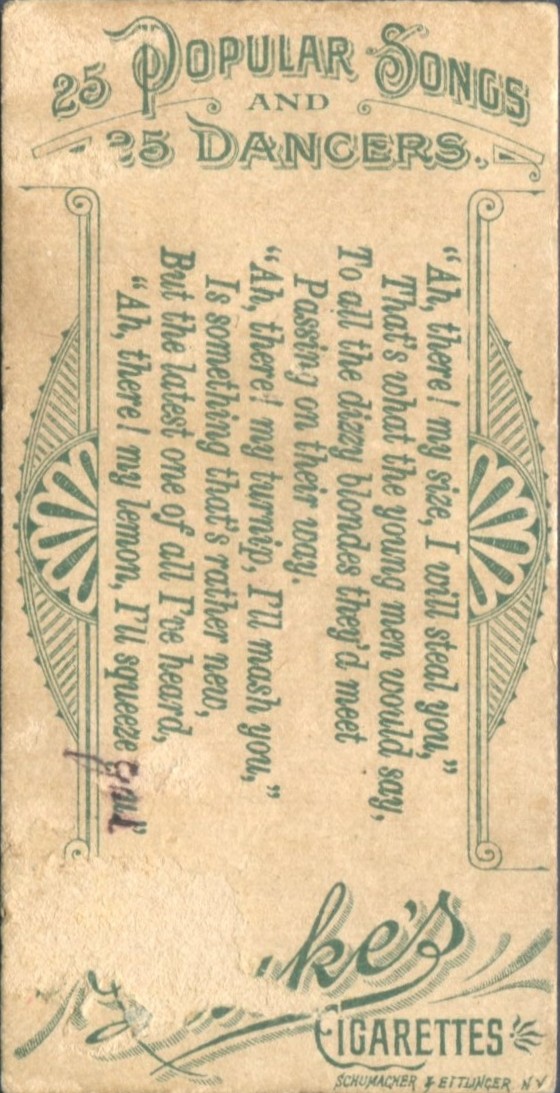 25 POPULAR SONGS
AND
25 DANCERS.
"Ah, there! my size, I will steal you,"
That's what the young men would say,
To all the dizzy blondes they'd meet
Passing on their way.
"Ah, there! my turnip, I'll mash you,"
Is something that's rather new,
But the latest one of all I've heard,
"Ah, there! my lemon, I'll squeeze you"
uke's
CIGARETTES
SCHUMACHER & ETTLINGER N Y